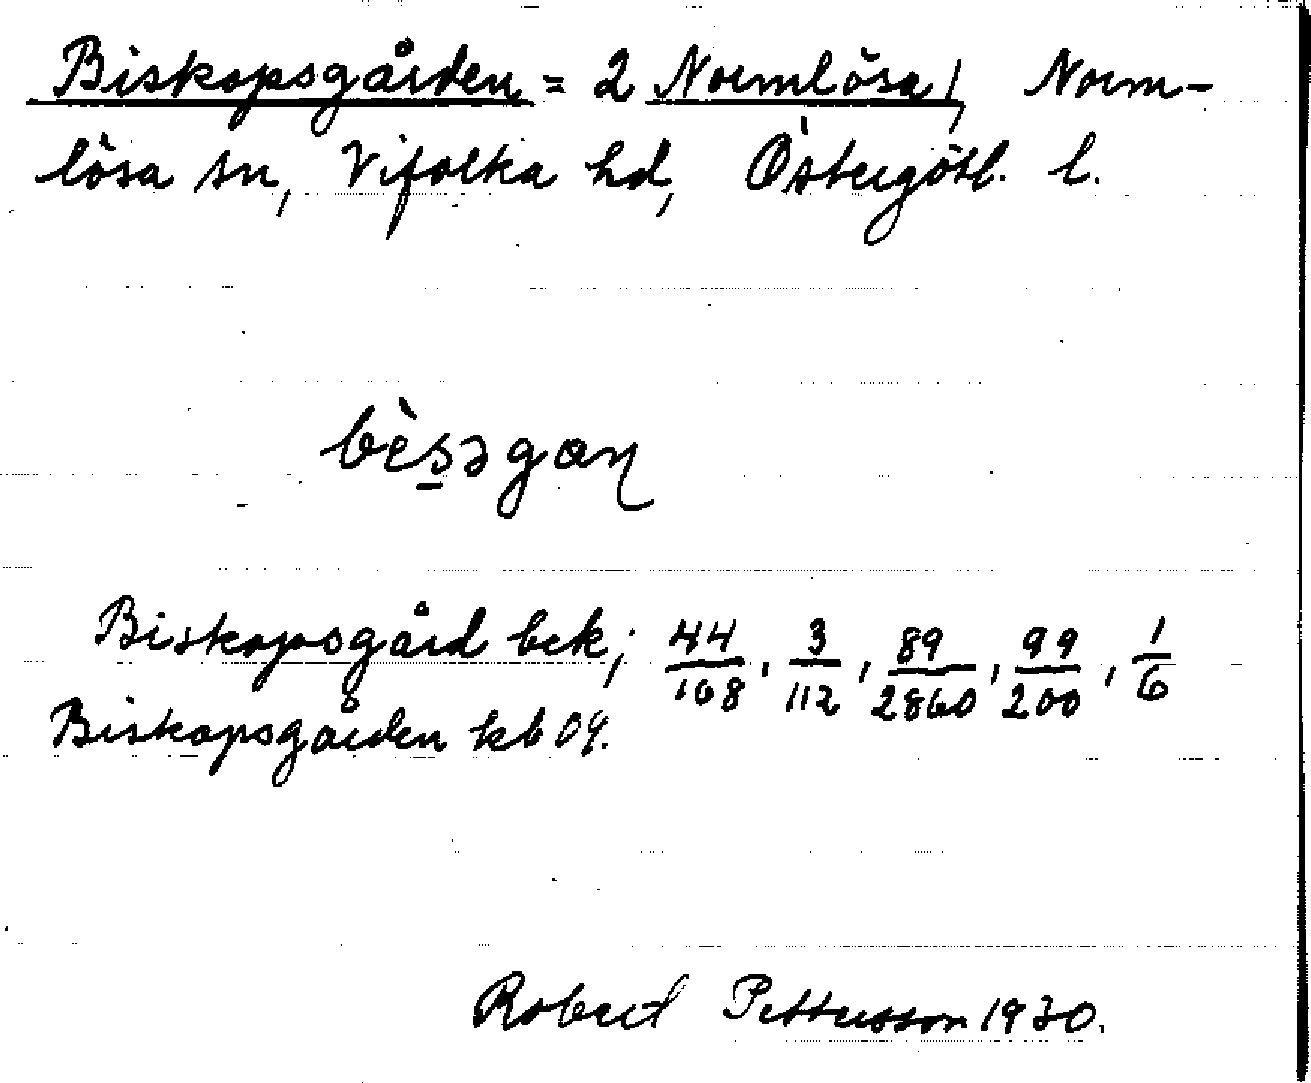 Biskopsgården = 2 Normlösa /, Norm-
lösa sn, Vifolka hd, Östergötl. l.
bèsəgaɳ
Biskopsgård bck; 44/108, 3/112, 89/2860, 99/200, 1/6
Biskopsgården kb 09.
Robert Pettersson 1930.